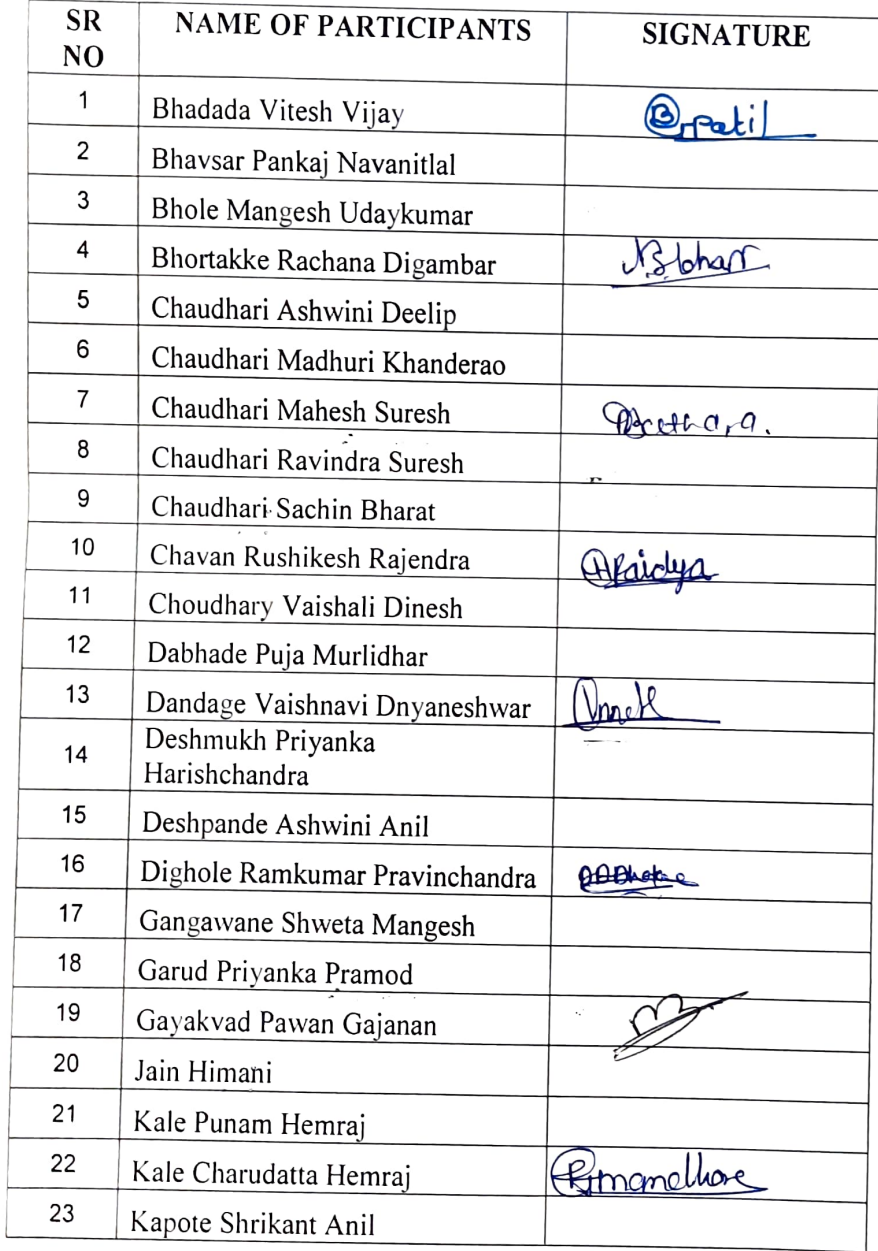 SR NO NAME OF PARTICIPANTS SIGNATURE
1 Bhadada Vitesh Vijay patil
2 Bhavsar Pankaj Navanitlal
3 Bhole Mangesh Udaykumar
4 Bhortakke Rachana Digambar
5 Chaudhari Ashwini Deelip
6 Chaudhari Madhuri Khanderao
7 Chaudhari Mahesh Suresh
8 Chaudhari Ravindra Suresh
9 Chaudhari Sachin Bharat
10 Chavan Rushikesh Rajendra
11 Choudhary Vaishali Dinesh
12 Dabhade Puja Murlidhar
13 Dandage Vaishnavi Dnyaneshwar
14 Deshmukh Priyanka
Harishchandra
15 Deshpande Ashwini Anil
16 Dighole Ramkumar Pravinchandra
17 Gangawane Shweta Mangesh
18 Garud Priyanka Pramod
19 Gayakvad Pawan Gajanan
20 Jain Himani
21 Kale Punam Hemraj
22 Kale Charudatta Hemraj
23 Kapote Shrikant Anil